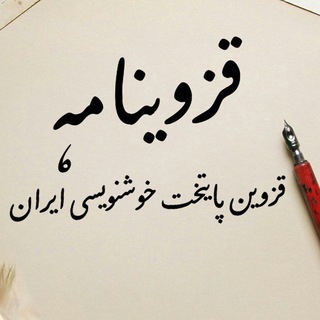 قزوینامه
قزوین پایتخت خوشنویسی ایران